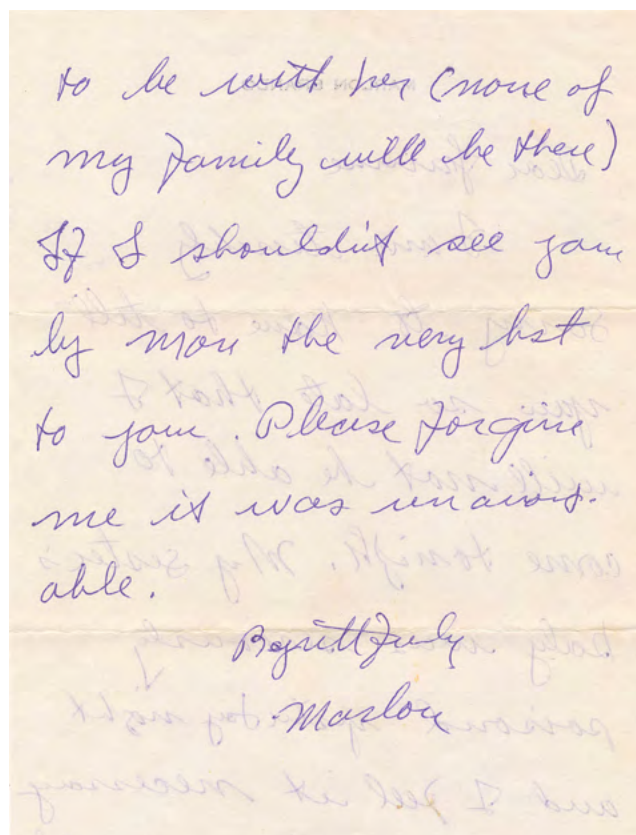 to be with her (none of
my family will be there)
If I shouldn't see you
by mon the very best
to you. Please forgive
me it was unavoid-
able.
Regrettfuly
Marlon